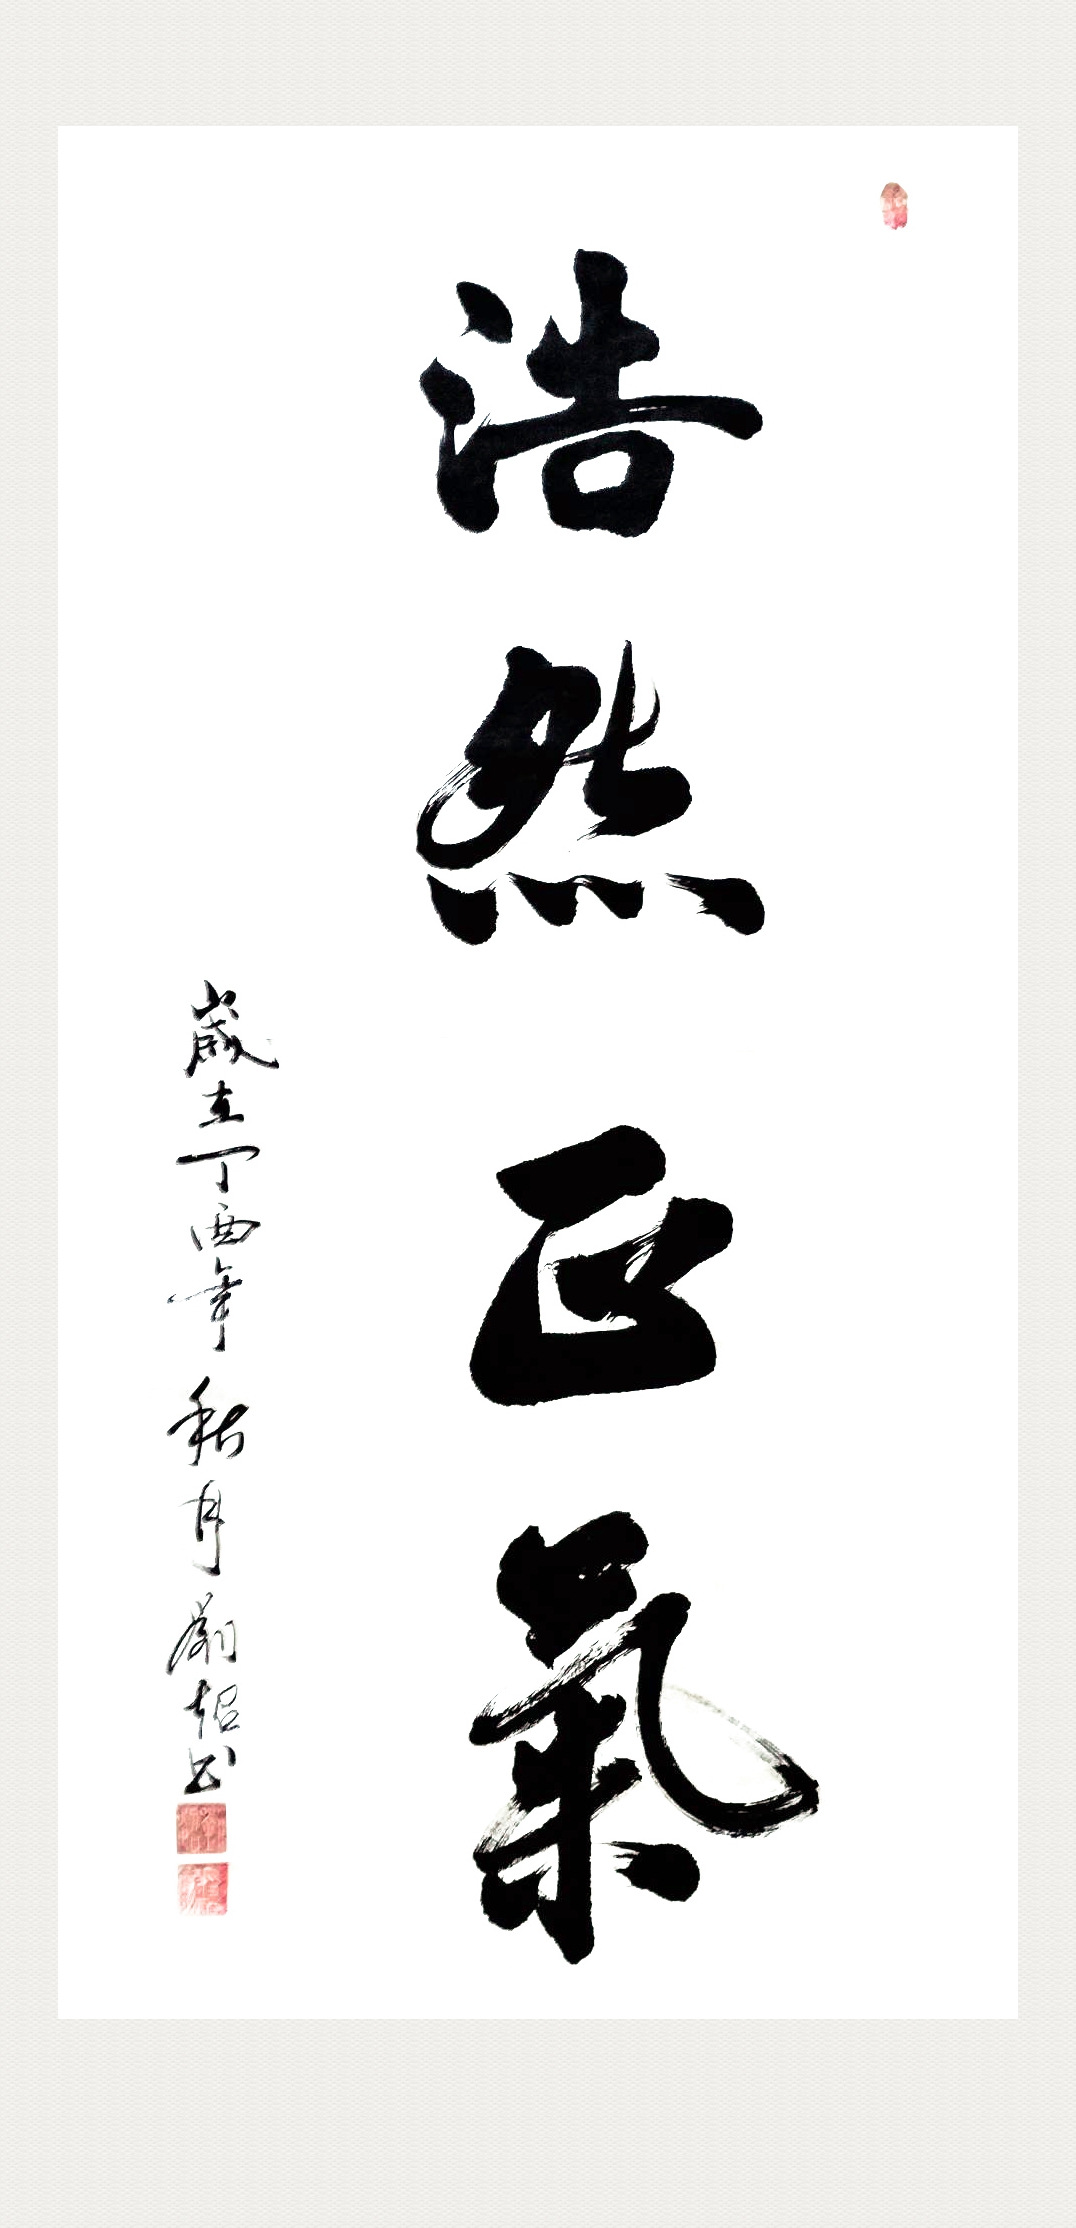 浩然正氣
歲在丁酉年秋月嚴超书